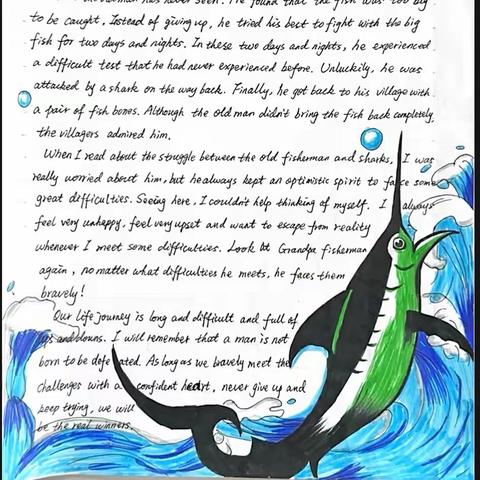 has never seen. He found that the fish was too big
to be caught. Instead of giving up, he tried his best to fight with the big
fish for two days and nights. In these two days and nights, he experienced
a difficult test that he had never experienced before. Unluckily, he was
attacked by a shark on the way back. Finally, he got back to his village with
a pair of fish bones. Although the old man didn't bring the fish back completely,
the villagers admired him.
When I read about the struggle between the old fisherman and sharks, I was
really worried about him, but he always kept an optimistic spirit to face some
great difficulties. Seeing here, I couldn't help thinking of myself. I always
feel very unhappy, feel very upset and want to escape from reality
whenever I meet some difficulties. Look at Grandpa fisherman
again, no matter what difficulties he meets, he faces them
bravely!
Our life journey is long and difficult and full of
ups and downs. I will remember that a man is not
born to be defeated. As long as we bravely meet the
challenges with a confident heart, never give up and
keep trying, we will
be the real winners.